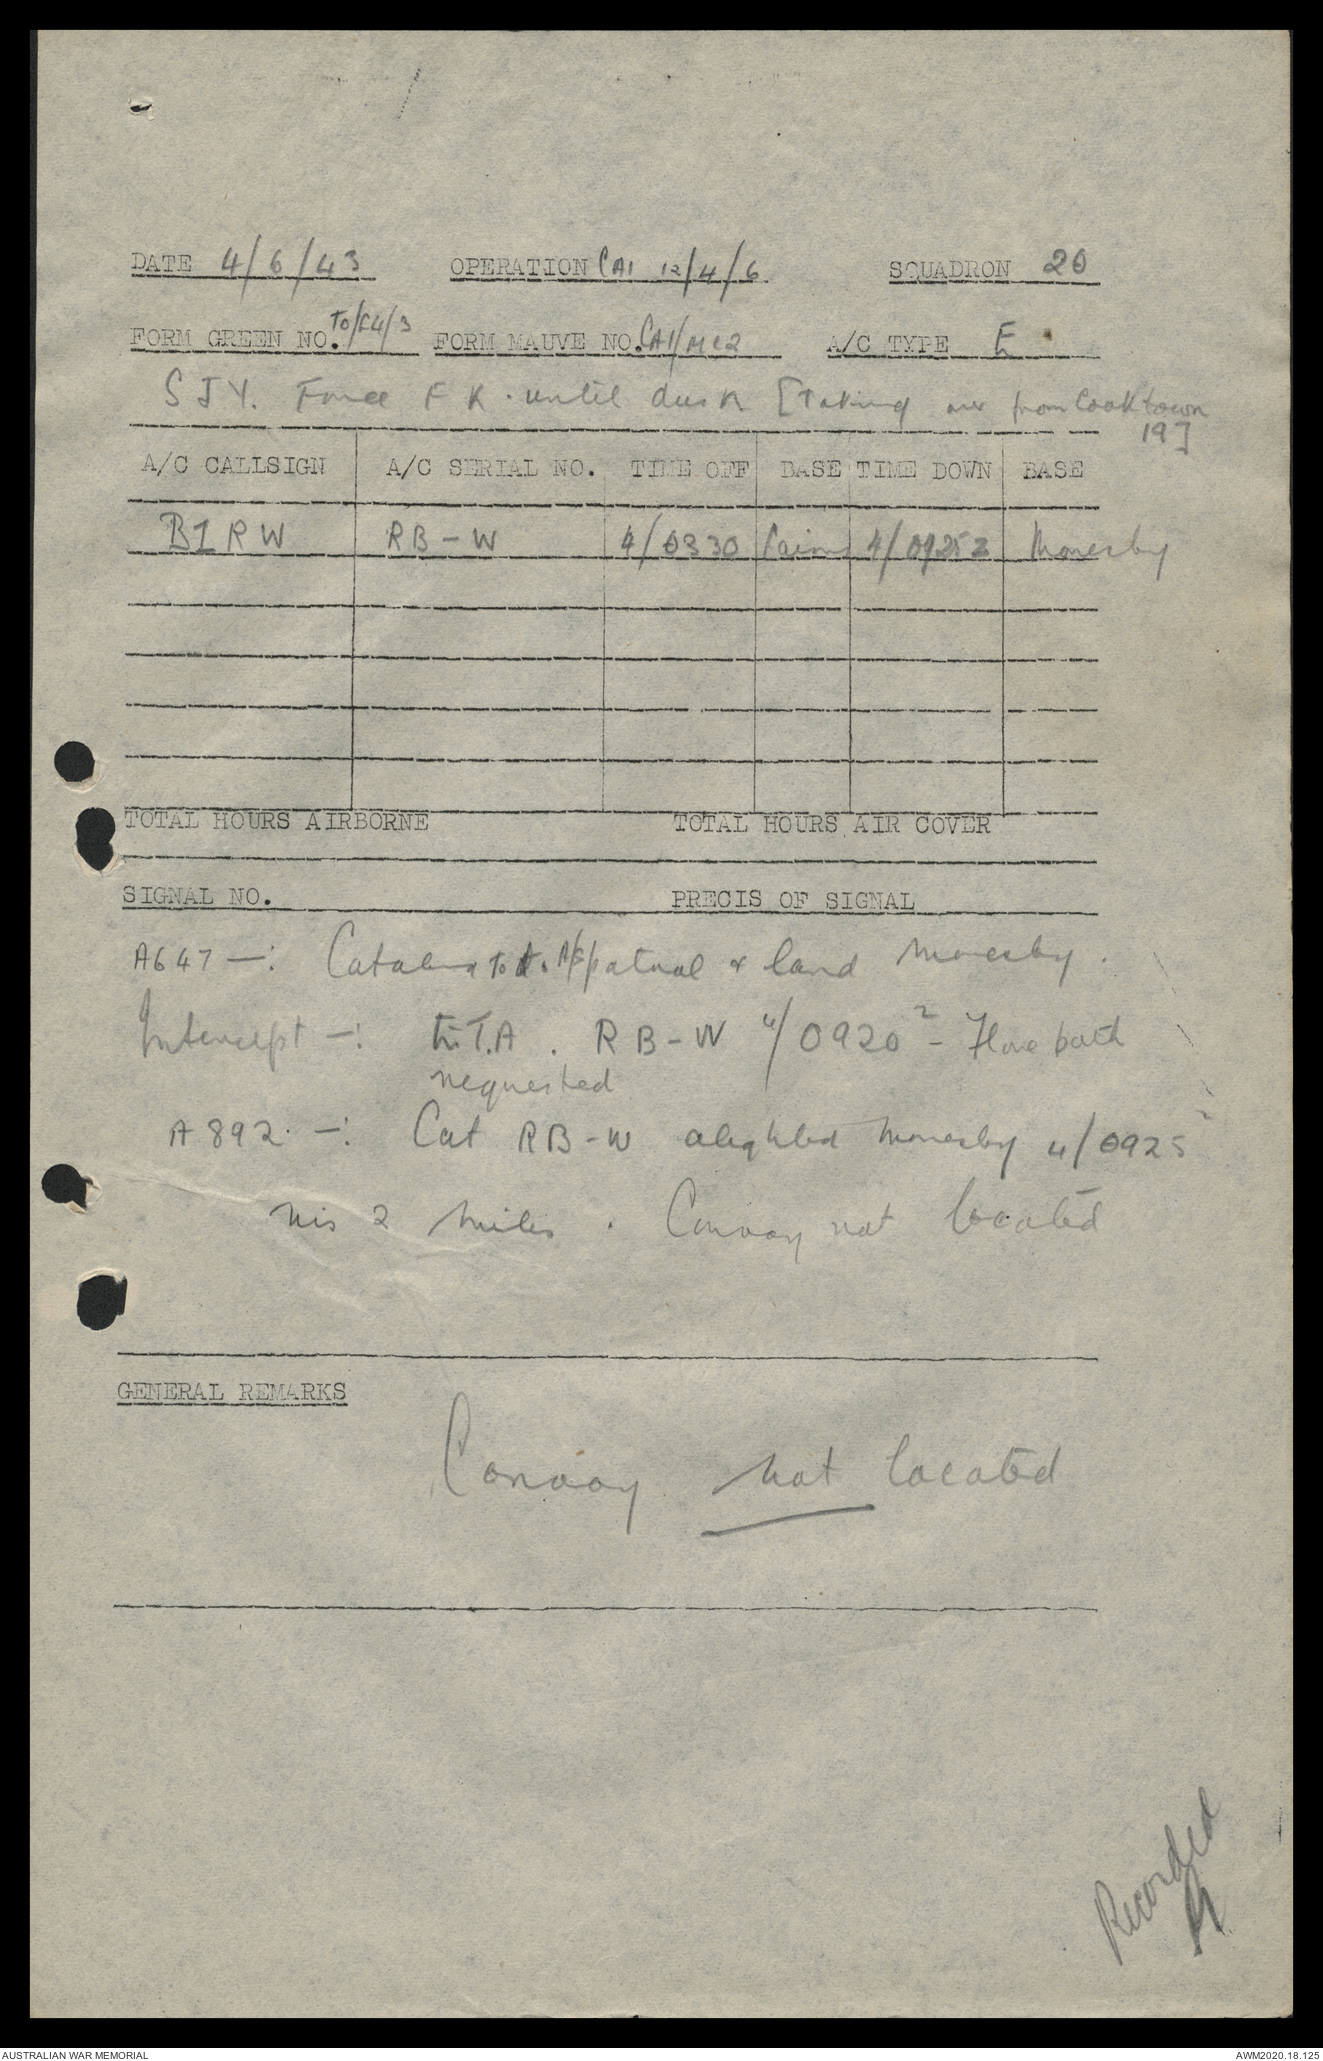 DATE 4/6/43 OPERATION CA1 12/4/6 SQUADRON 20
FORM GREEN NO. TO/G4/3 FORM MAUVE NO. CA1/MC2 A/C TYPE E
SJY. Force FK. until dusk [taking over from Cooktown
19]
A/C CALLSIGN A/C SERIAL NO. TIME OFF BASE TIME DOWN BASE
B1RW RB-W 4/0330 Cairns 4/0925Z Moresby
TOTAL HOURS AIRBORNE TOTAL HOURS AIR COVER
SIGNAL NO. PRECIS OF SIGNAL
A647 -: Catalina to do A/S patrol & land Moresby.
Intercept -: E.T.A. RB-W 4/0920Z - Flare path
requested
A892. -: Cat RB-W alighted Moresby 4/0925Z
Vis 2 miles. Convoy not located
GENERAL REMARKS
Convoy not located
Recorded
AUSTRALIAN WAR MEMORIAL AWM2020.18.125